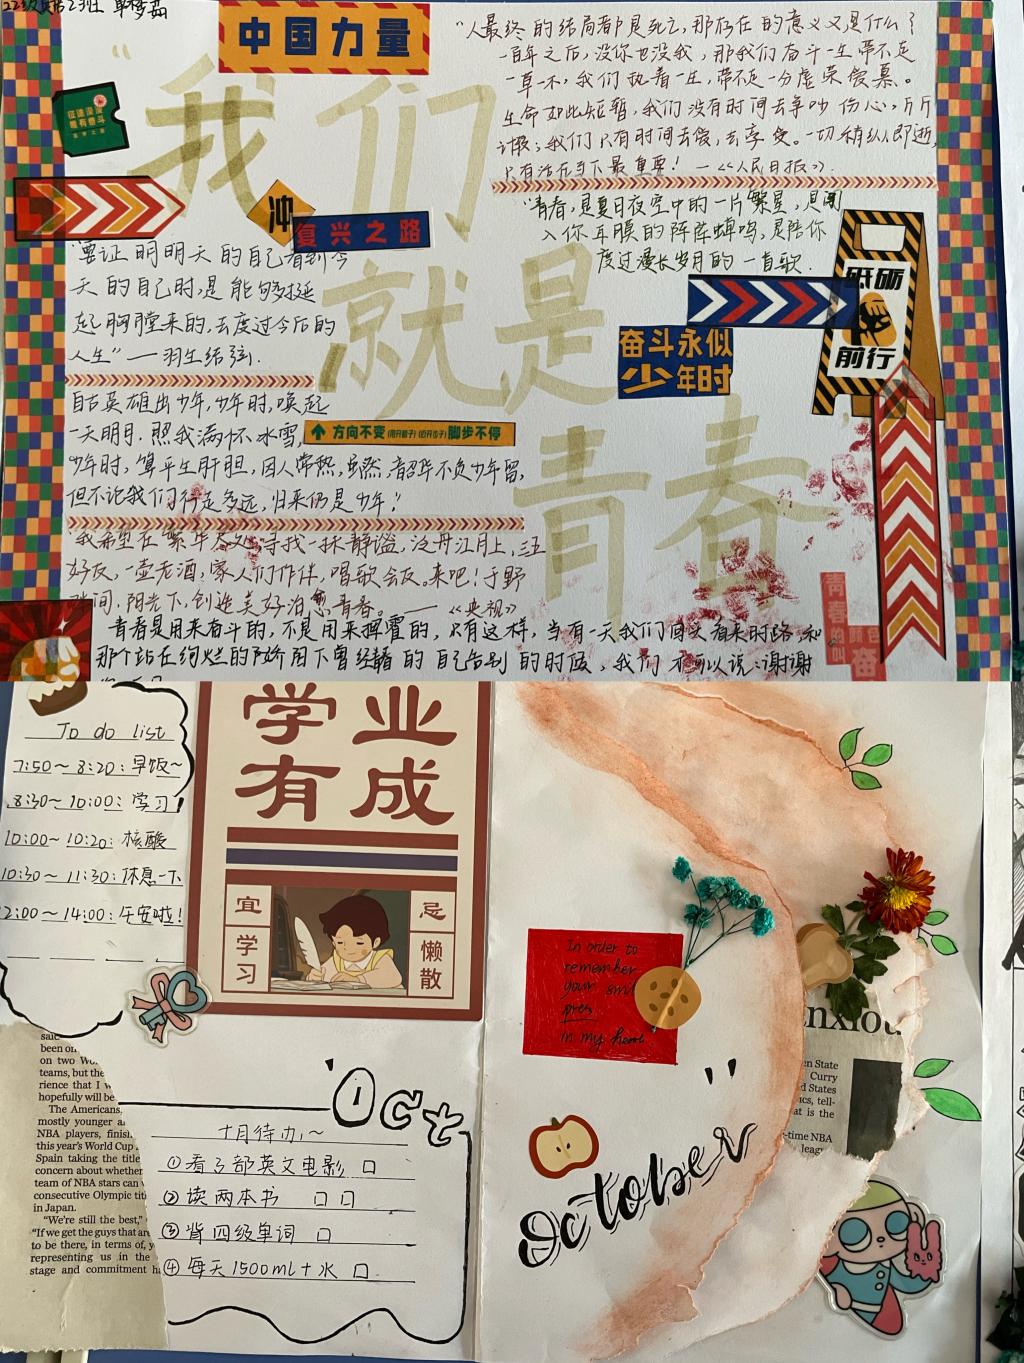 中国力量
"我们
就是
青春"
征途漫漫
唯有奋斗
冲
复兴之路
"人最终的结局都是死亡,那存在的意义又是什么?
百年之后,没你也没我,那我们奋斗一生带不走
一草一木,我们执着一生,带不走一分虚荣爱慕。
生命如此短暂,我们没有时间去争吵伤心,斤斤
计较,我们只有时间去爱,去享受。一切稍纵即逝,
只有活在当下最重要! —《人民日报》.
"青春,是夏日夜空中的一片繁星,是闯
入你耳膜的阵阵蝉鸣,是陪你
度过漫长岁月的一首歌.
砥砺
前行
奋斗永似
少年时
"要证明明天的自己看到今
天的自己时,是能够挺
起胸膛来的,去度过今后的
人生"—羽生结弦.
自古英雄出少年,少年时,唤起
一天明月.照我满怀冰雪,
方向不变 脚步不停
少年时,算平生肝胆,因人常热,虽然,韶华不负少年留,
但不论我们行走多远,归来仍是少年!
"我希望在繁华尽处,寻找一抹静谧,泛舟江月上,三五
好友,一壶老酒,家人们作伴,唱歌会友,来吧!于野
间.阳光下,创造美好治愈青春。——《央视》
青春是用来奋斗的,不是用来挥霍的,只有这样,当有一天我们回头看来时路,和
那个站在绚烂的骄阳下曾经的自己告别的时候,我们才可以说:谢谢
青春
To do list
7:50~8:20:早饭~
8:30~10:00:学习!
10:00~10:20:核酸
10:30~11:30:休息一下
2:00~14:00:午安啦!
学业
有成
宜
学习
忌
懒散
In order to
remember
your
press
in my heart
nxiou
en State
Curry
d States
ics, tell-
at is the
-time NBA
leag
said
been on
on two Wo
teams, but the
rience that I w
hopefully will be
The Americans,
mostly younger a
NBA players, finish
this year's World Cup
Spain taking the title
concern about whether
team of NBA stars can
consecutive Olympic tit
in Japan.
"We're still the best,"
"If we get the guys that are
to be there, in terms of, y
representing us in the
stage and commitment h
'Oct
十月待办~
①看3部英文电影 □
②读两本书 □□
③背四级单词 □
④每天1500ml+水 □
October